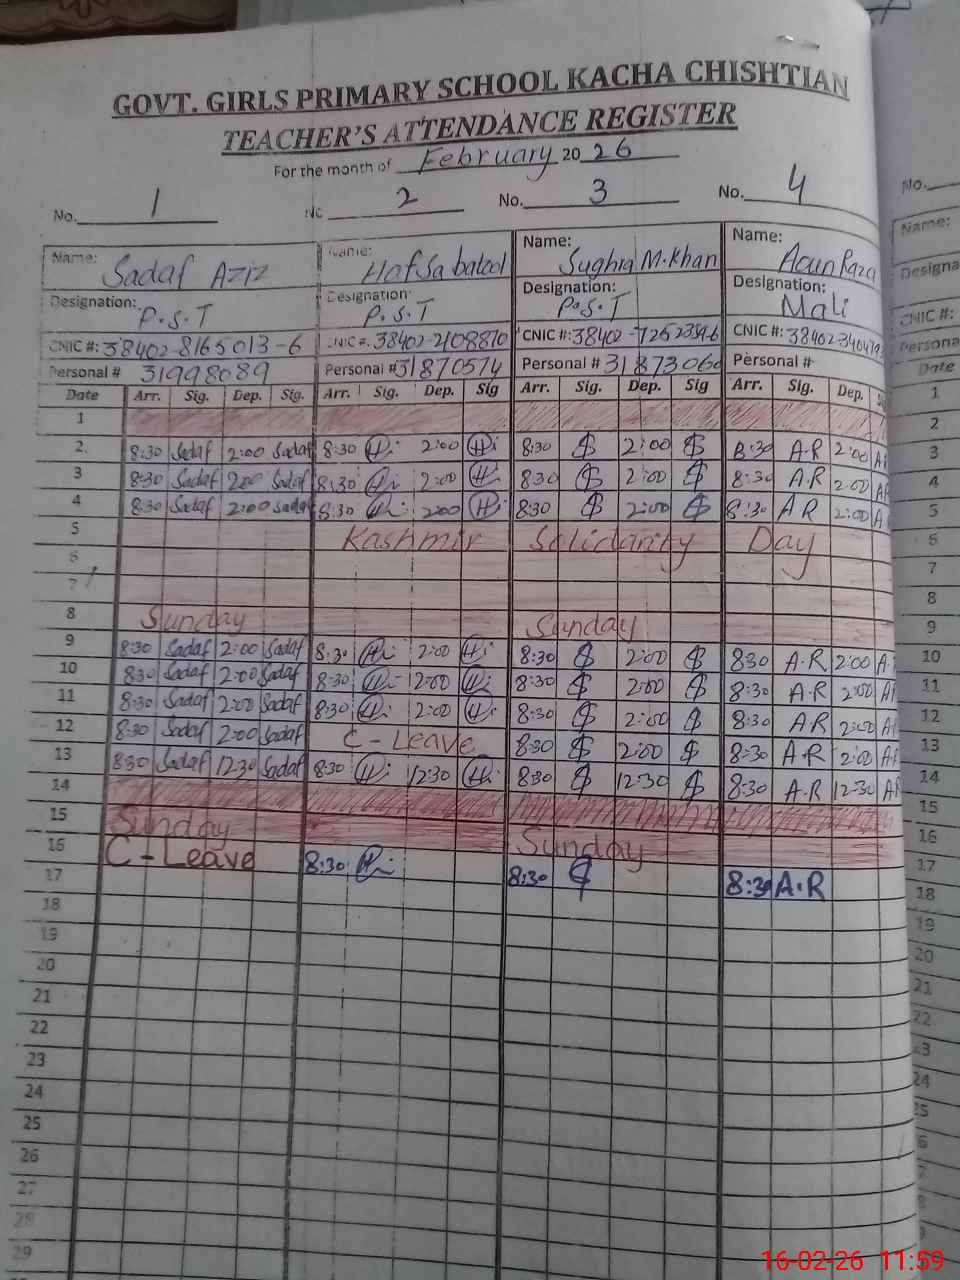 GOVT. GIRLS PRIMARY SCHOOL KACHA CHISHTIAN
TEACHER'S ATTENDANCE REGISTER
For the month of February 2026
No. 1 No. 2 No. 3 No. 4
Name: Sadaf Aziz Name: Hafsa batool Name: Sughra M.Khan Name: Aoun Raza
Designation: P.S.T Designation: P.S.T Designation: P.S.T Designation: Mali
CNIC #: 38402-8165013-6 CNIC #: 38402-2108870 CNIC #: 38402- CNIC #: 38402-
Personal # 31998089 Personal # 31870574 Personal # 3187306 Personal #
Date Arr. Sig. Dep. Sig. Arr. Sig. Dep. Sig Arr. Sig. Dep. Sig Arr. Sig. Dep.
1
2. 8:30 Sadaf 2:00 Sadaf 8:30 H 2:00 H 8:30 $ 2:00 $ 8:30 A.R 2:00
3 8:30 Sadaf 2:00 Sadaf 8:30 H 2:00 H 8:30 $ 2:00 $ 8:30 A.R 2:00
4 8:30 Sadaf 2:00 Sadaf 8:30 H 2:00 H 8:30 $ 2:00 $ 8:30 AR 2:00
5 Kashmir Solidarity Day
6
7
8 Sunday Sunday
9 8:30 Sadaf 2:00 Sadaf 8:30 H 2:00 H 8:30 $ 2:00 $ 830 A.R 2:00
10 8:30 Sadaf 2:00 Sadaf 8:30 H 2:00 H 8:30 $ 2:00 $ 8:30 A.R 2:00
11 8:30 Sadaf 2:00 Sadaf 8:30 H 2:00 H 8:30 $ 2:00 $ 8:30 AR 2:00
12 8:30 Sadaf 2:00 Sadaf C - Leave 8:30 $ 2:00 $ 8:30 A.R 2:00
13 8:30 Sadaf 12:30 Sadaf 8:30 H 12:30 H 8:30 $ 12:30 $ 8:30 A.R 12:30
14
15 Sunday Sunday
16 C - Leave 8:30 H 8:30 $ 8:30 A.R
17
18
19
20
21
22
23
24
25
26
27
28
29
No.
Name:
Designa
CNIC #:
Persona
Date
1
2
3
4
5
6
7
8
9
10
11
12
13
14
15
16
17
18
19
20
21
22
24
16-02-26 11:59